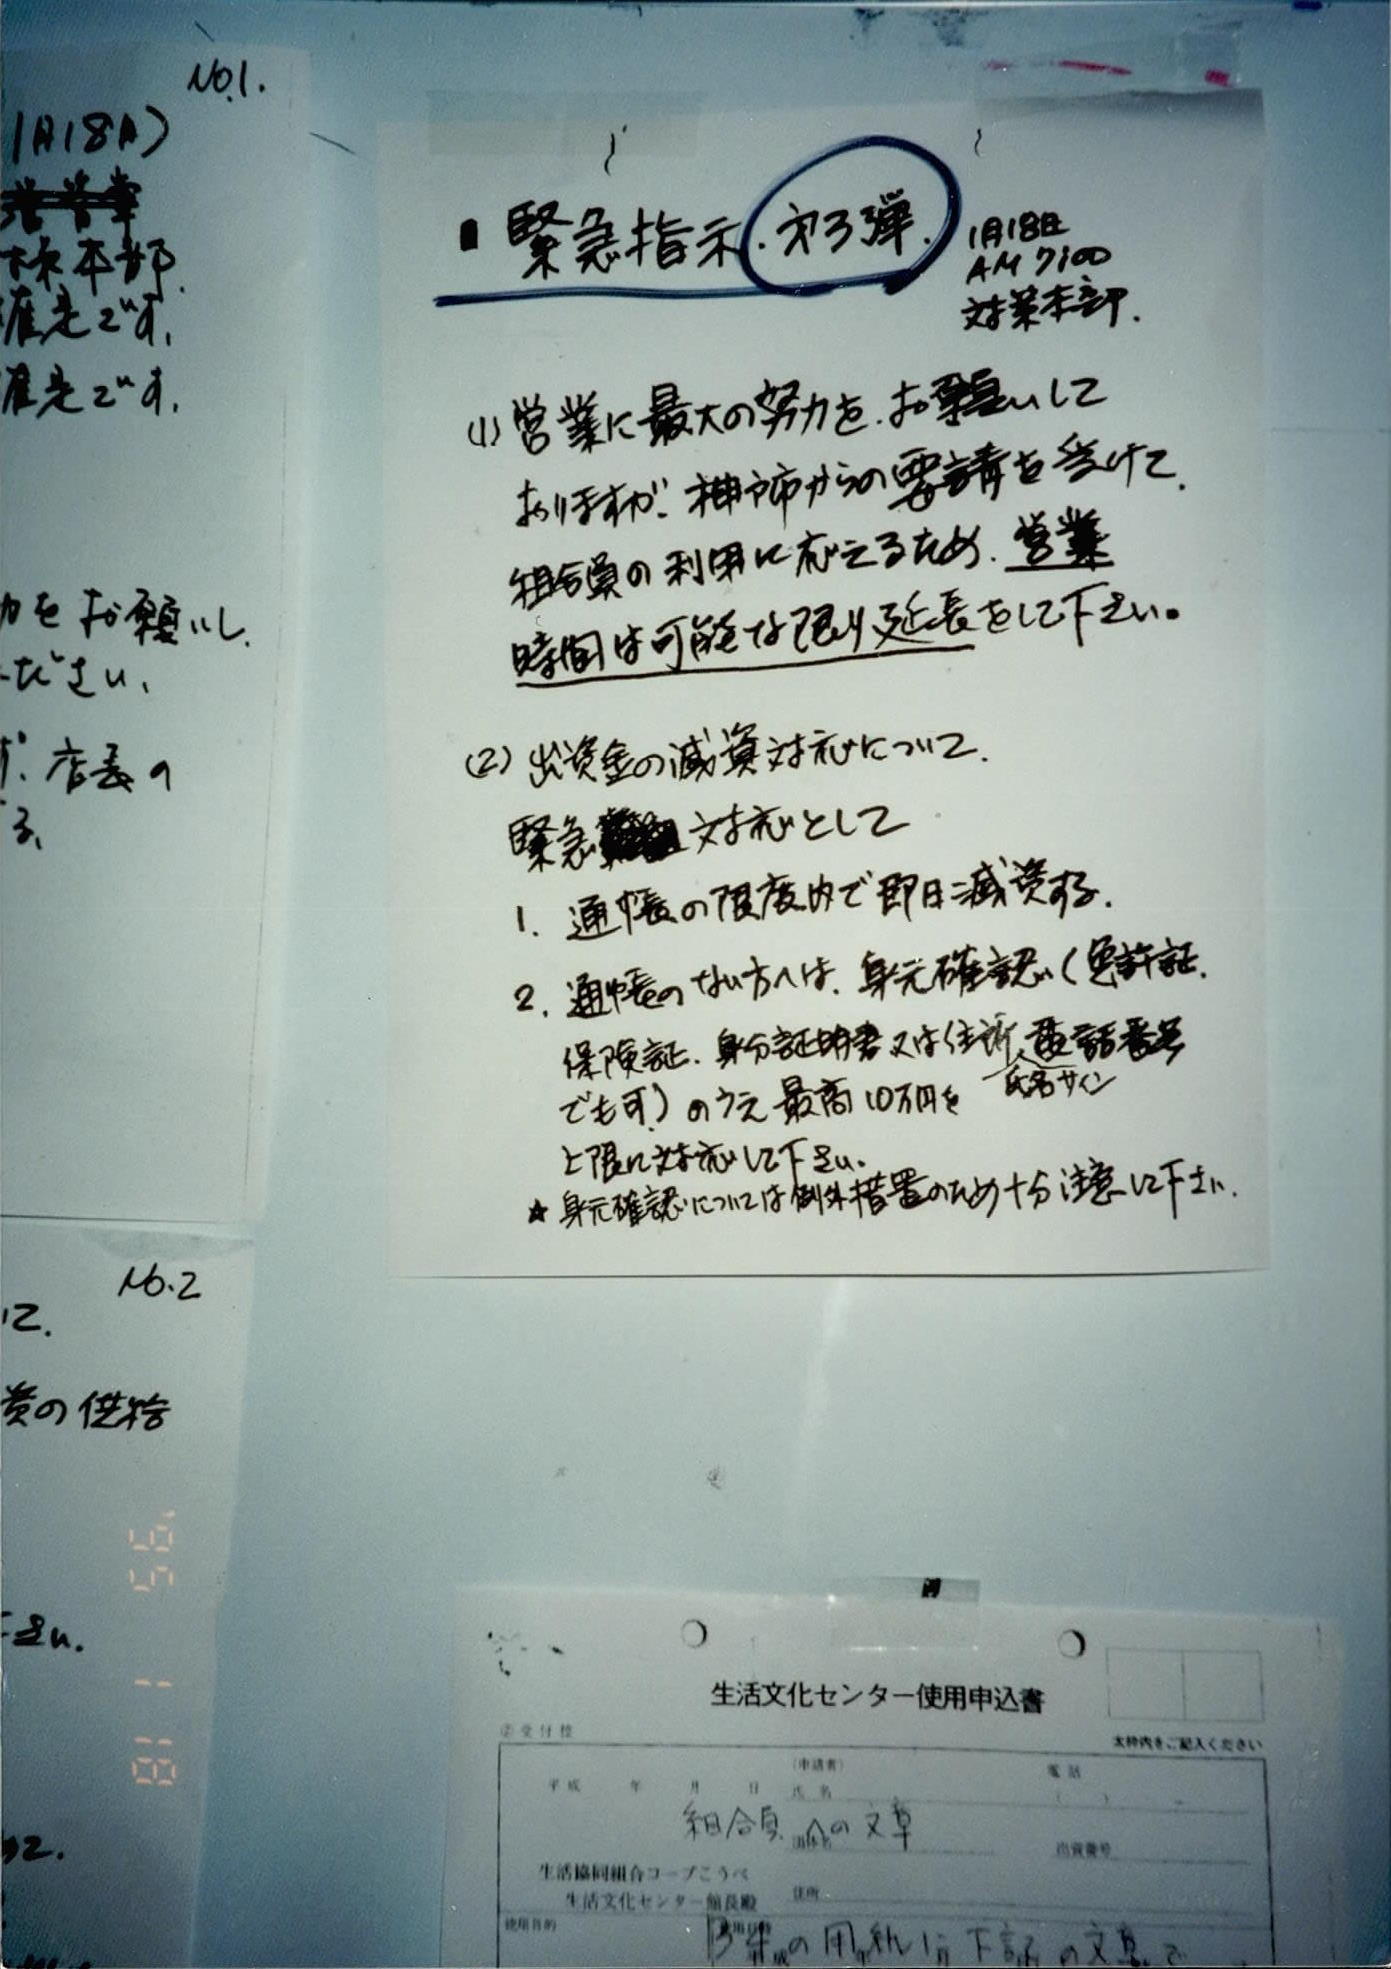 No.1.
1月18日)
本部.
です.
です.
をお願いし.
ださい.
店長の
る.
■ 緊急指示.オ3弾.
1月18日
AM 7:00
対策本部.
(1) 営業に最大の努力を.お願いして
おりますが、神戸市からの要請を受けて.
組合員の利用に応えるため.営業
時間は可能な限り延長をして下さい。
(2) 出資金の減資対応について.
緊急 対応として
1. 通帳の限度内で即日減資する.
2. 通帳のない方へは、身元確認(免許証.
保険証.身分証明書又は住所、電話番号
氏名サイン
でも可)のうえ最高10万円を
上限に対応して下さい.
☆ 身元確認については例外措置のため十分注意して下さい.
No.2
にて.
資の供給
下さい.
'95 1 18
生活文化センター使用申込書
②受付控
太枠内をご記入ください
平成 年 月 日
(申請者)
氏名
電話
( ) -
組合員への文章
団体名
出資番号
生活協同組合コープこうべ
生活文化センター館長殿
住所
使用目的
の用紙に下記の文章で